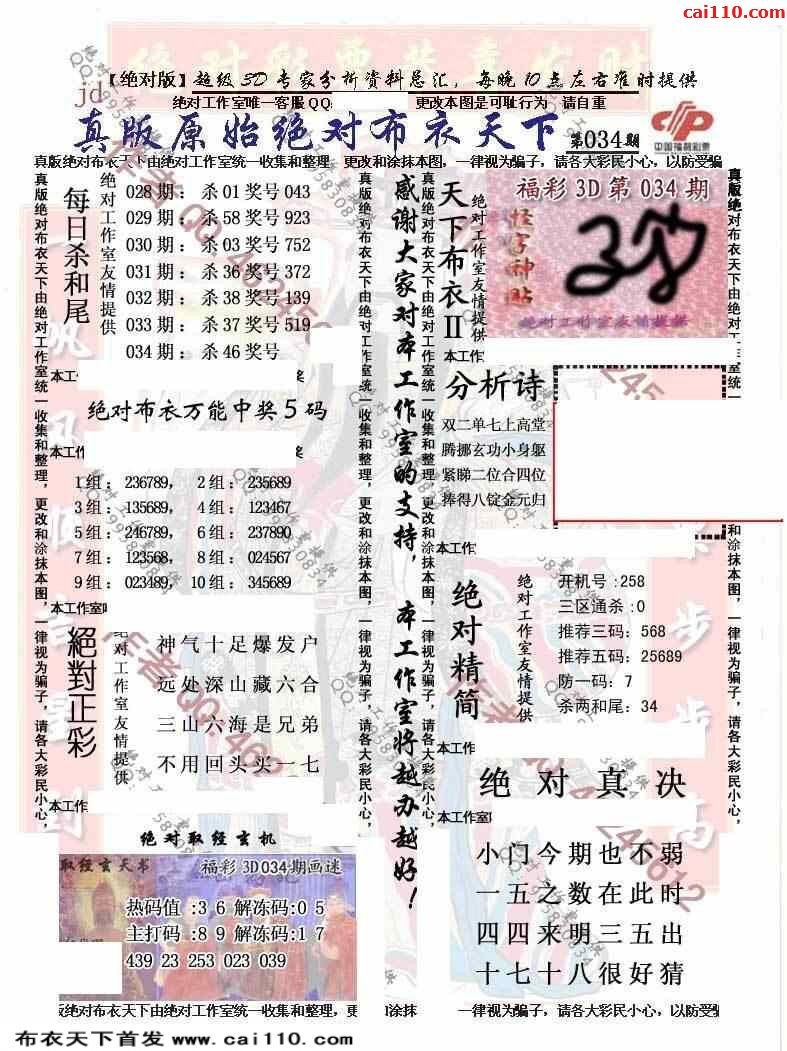 cai110.com
【绝对版】超级3D专家分析资料总汇，每晚10点左右准时提供
jd
绝对工作室唯一客服QQ: 更改本图是可耻行为 请自重
真版原始绝对布衣天下 第034期
中国福利彩票
真版绝对布衣天下由绝对工作室统一收集和整理，更改和涂抹本图，一律视为骗子，请各大彩民小心，以防受骗
真版绝对布衣天下由绝对工作室统一收集和整理，更改和涂抹本图，一律视为骗子，请各大彩民小心，
每日杀和尾
绝对工作室友情提供
028期：杀01奖号043
029期：杀58奖号923
030期：杀03奖号752
031期：杀36奖号372
032期：杀38奖号139
033期：杀37奖号519
034期：杀46奖号
本工作
绝对布衣万能中奖5码
本工作
1组：236789，2组：235689
3组：135689，4组：123467
5组：246789，6组：237890
7组：123568，8组：024567
9组：023489，10组：345689
本工作室
絕對正彩
绝对工作室友情提供
神气十足爆发户
远处深山藏六合
三山六海是兄弟
不用回头买一七
本工作
绝对取经玄机
取经玄天书 福彩3D034期画谜
热码值:36解冻码:05
主打码:89解冻码:17
439 23 253 023 039
感谢大家对本工作室的支持，本工作室将越办越好！
天下布衣II
绝对工作室友情提供
福彩3D第034期
怪字神贴
绝对工作室友情提供
本工作
分析诗
双二单七上高堂
腾挪玄功小身躯
紧睇二位合四位
捧得八锭金元归
本工作
绝对精简
绝对工作室友情提供
开机号:258
三区通杀:0
推荐三码:568
推荐五码:25689
防一码:7
杀两和尾:34
本工作
绝对真决
本工作室
小门今期也不弱
一五之数在此时
四四来明三五出
十七十八很好猜
版绝对布衣天下由绝对工作室统一收集和整理，更 和涂抹 一律视为骗子，请各大彩民小心，以防受骗
布衣天下首发 www.cai110.com